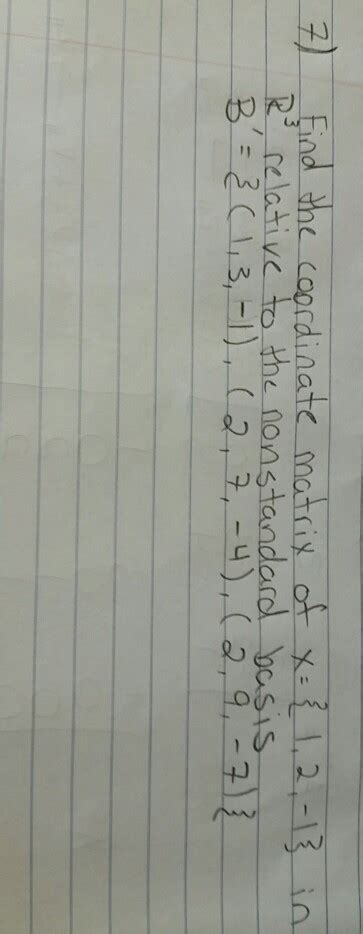 7) Find the coordinate matrix of x={1,2,-1} in
R³ relative to the nonstandard basis
B'={(1,3,-1),(2,7,-4),(2,9,-7)}